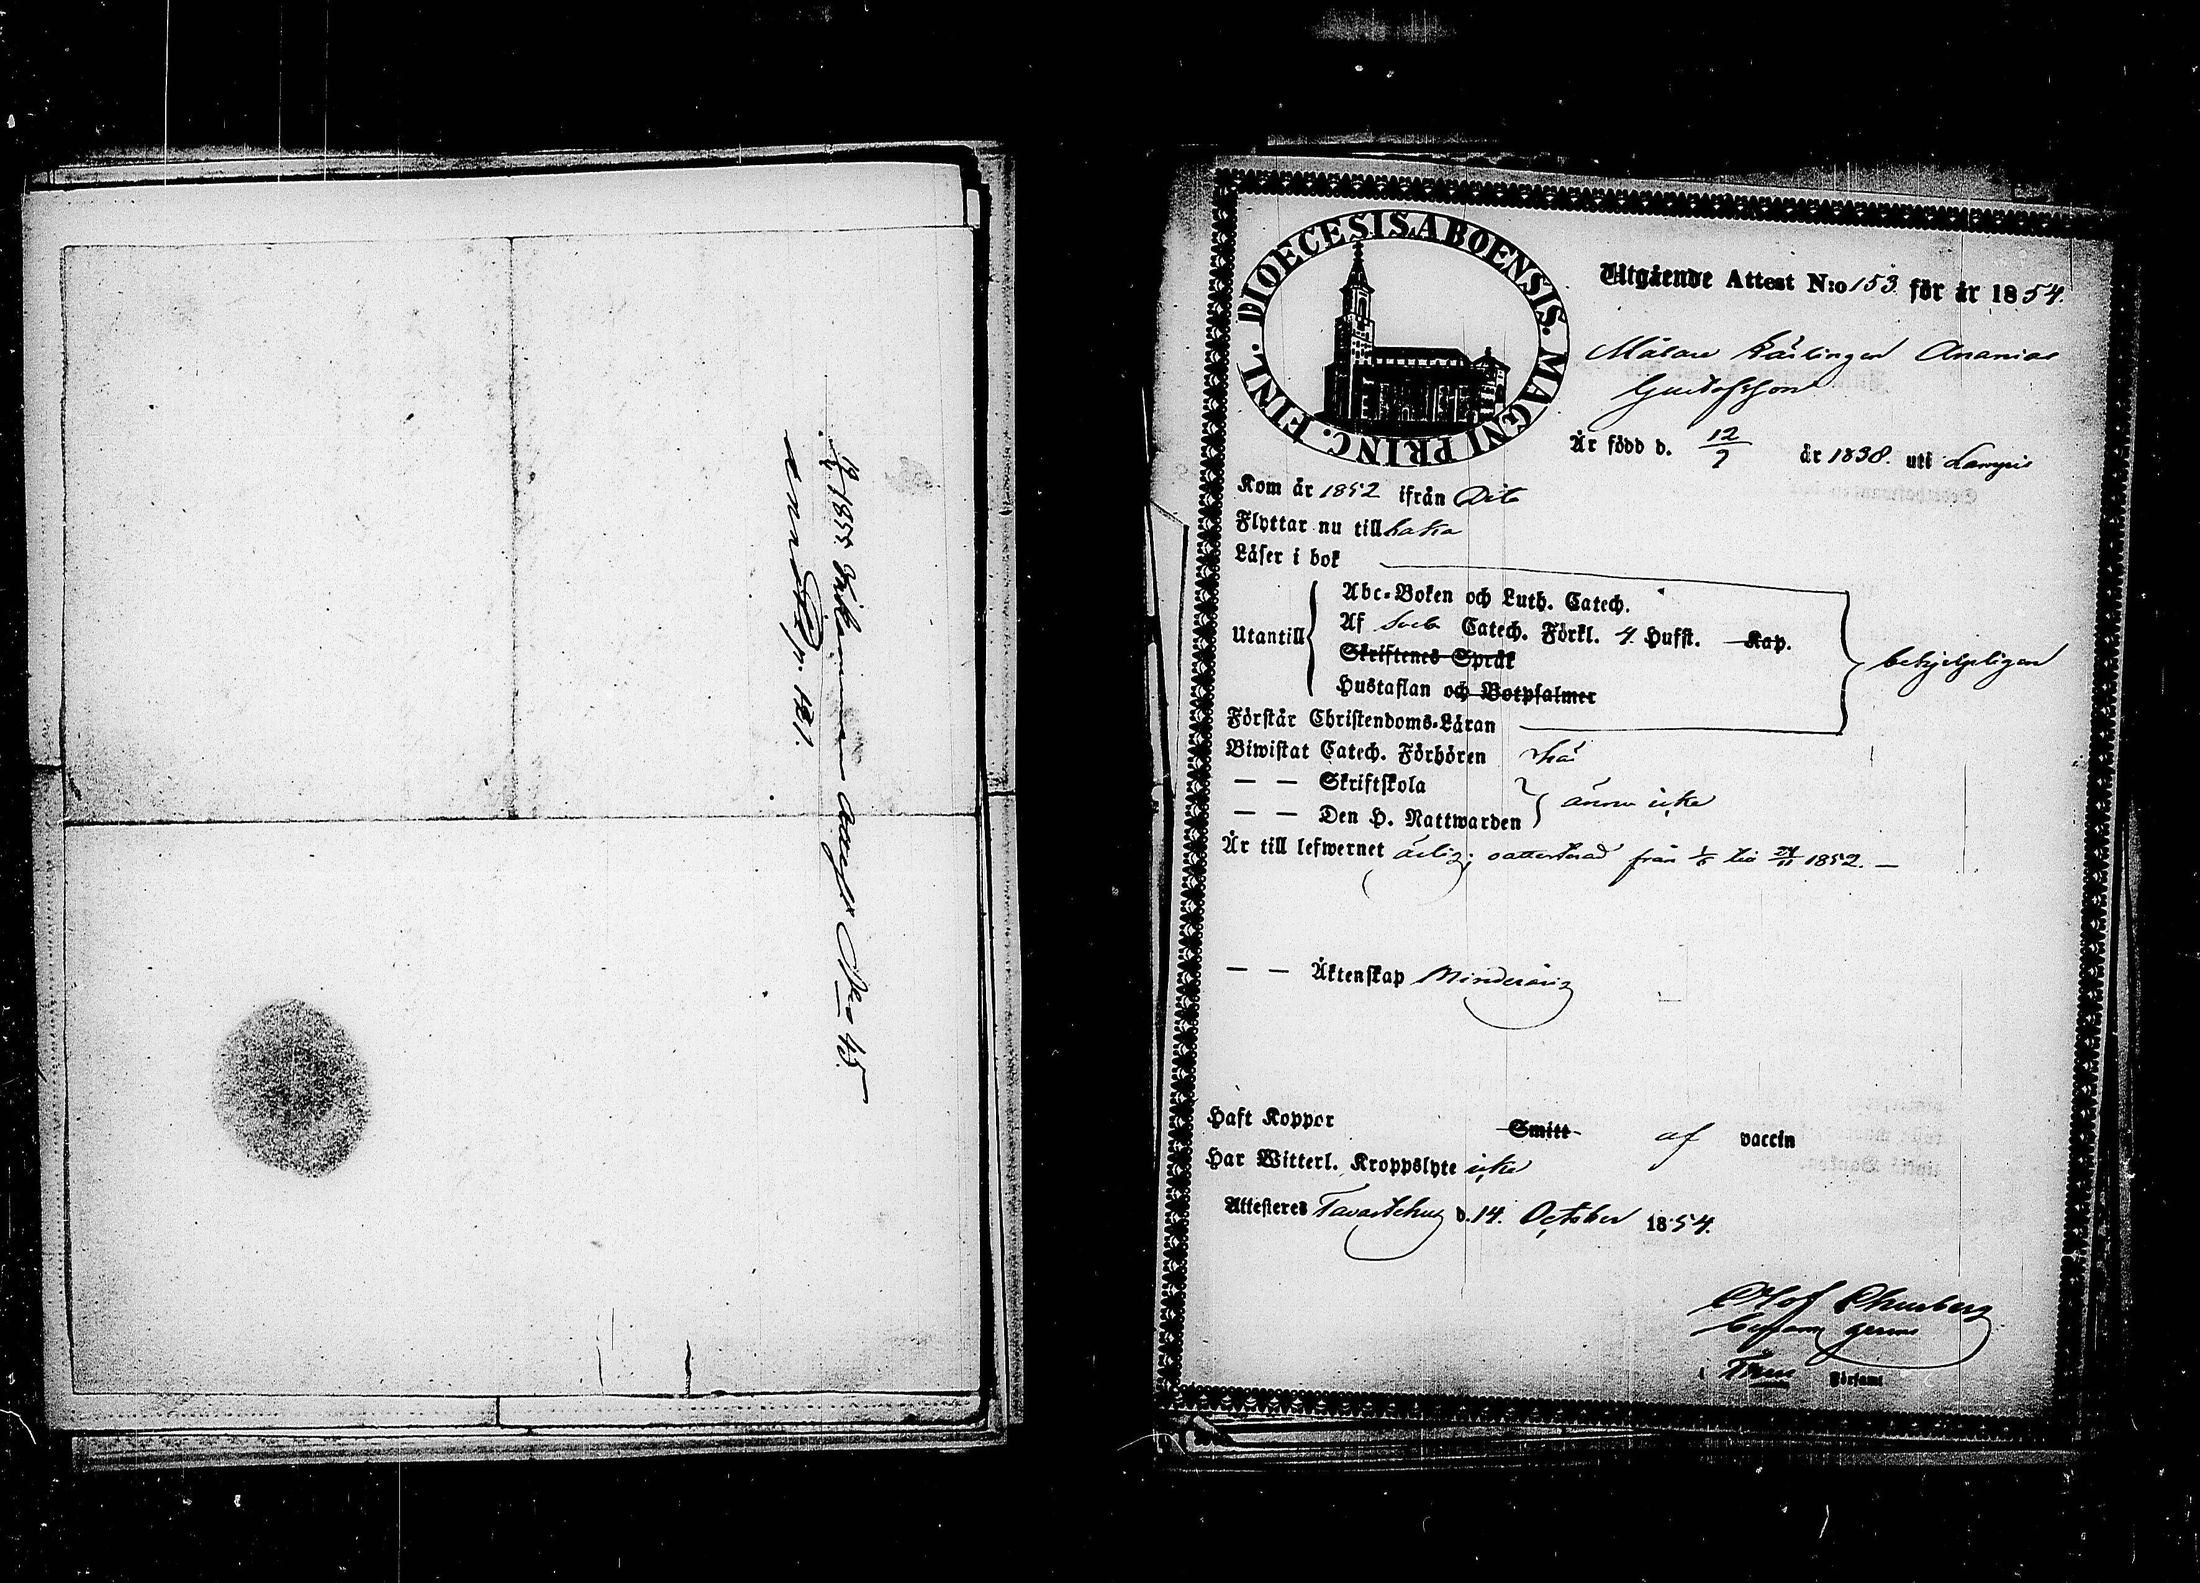 1855 Inkommen attest No 45
p. 121.
DIOECESIS ABOENSIS. MAGNI PRINC. FINL.
Utgående Attest N:o 153 för år 1854.
Målare Lärlingen Ananias
Gustafsson
Är född d. 12/7 år 1838. uti Lampis
Kom år 1852 ifrån Dito
Flyttar nu till
Läser i bok
Abc-Boken och Luth. Catech.
Utantill Af Sveb Catech. Förkl. 4 Hufst. Kap.
Skriftenes Språk
Hustaflan och Botpsalmer
behjelpligen
Förstår Christendoms-Läran
Biwistat Catech. Förhören
— — Skriftskola
ännu icke
— — Den H. Nattwarden
Är till lefwernet ärlig; från 1852. —
— — Äktenskap Minderårig
Haft Koppor Smitt af vaccin
Har Witterl. Kroppslyte icke
Attesteres Tavastehus d. 14. October 1854.
Olof
i Församl